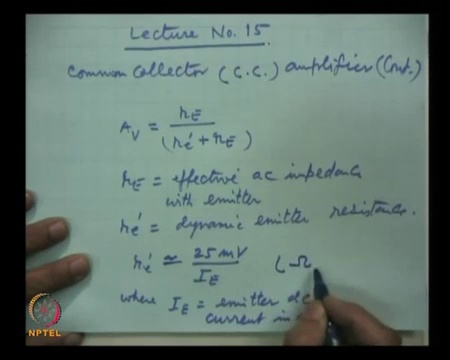 Lecture No. 15.
Common Collector (C.C.) amplifier (Cont.)
A_V = r_E / (r_e' + r_E)
r_E = effective ac impedance
with emitter
r_e' = dynamic emitter resistance.
r_e' ≃ 25 mV / I_E (Ω
where I_E = emitter dc
current in
NPTEL